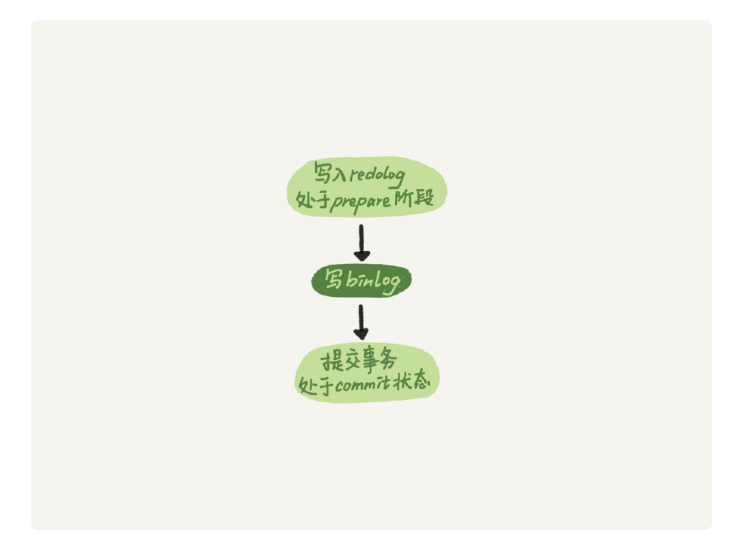 写入redolog
处于prepare阶段
写binlog
提交事务
处于commit状态